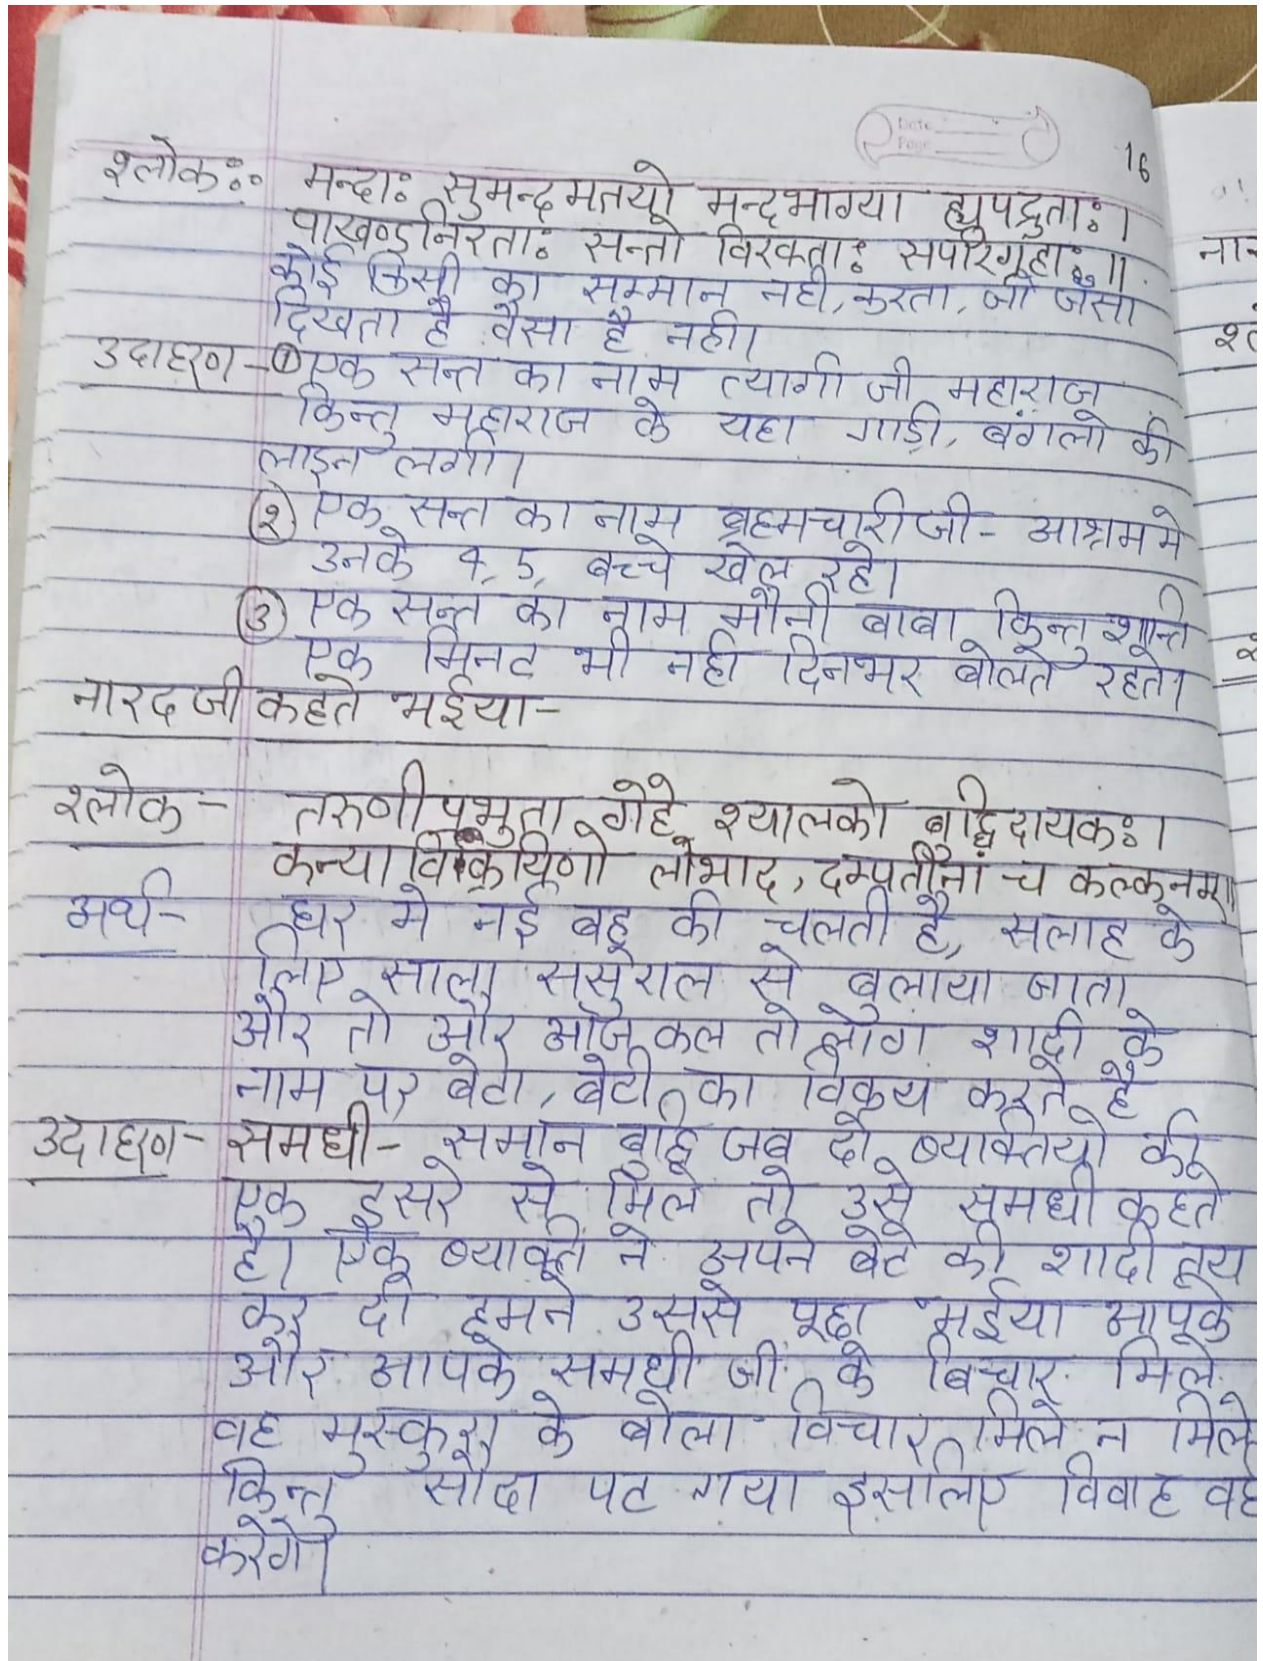 Date
Page
16
श्लोकः॰ मन्दाः सुमन्दमतयो मन्दभाग्या ह्युपद्रुताः।
पाखण्डनिरताः सन्तो विरक्ताः सपरिग्रहाः॥
कोई किसी का सम्मान नही करता, जो जैसा
दिखता है वैसा है नही।
उदाहरण-① एक सन्त का नाम त्यागी जी महाराज
किन्तु महाराज के यहा गाडी, बंगलो की
लाइन लगी।
② एक सन्त का नाम ब्रह्मचारी जी- आश्रम मे
उनके 4, 5, बच्चे खेल रहे।
③ एक सन्त का नाम मौनी बाबा किन्तु शान्त
एक मिनट भी नही दिनभर बोलते रहते।
नारद जी कहते भईया-
श्लोक- तरुणीप्रभुता गेहे श्यालको बुद्धिदायकः।
कन्याविक्रयिणो लोभाद, दम्पतीनां च कल्कनम्॥
अर्थ- घर मे नई बहू की चलती है, सलाह के
लिए साला ससुराल से बुलाया जाता
और तो और आजकल तो लोग शादी के
नाम पर बेटा, बेटी का विक्रय करते है
उदाहरण- समधी- समान बुद्धि जब दो व्यक्तियो की
एक दुसरे से मिले तो उसे समधी कहते
है। एक व्यक्ति ने अपने बेटे की शादी तय
कर दी हमने उससे पूछा भईया आपके
और आपके समधी जी के बिचार मिले
वह मुस्कुरा के बोला विचार मिले न मिले
किन्तु सौदा पट गया इसलिए विवाह वही
करेगे।